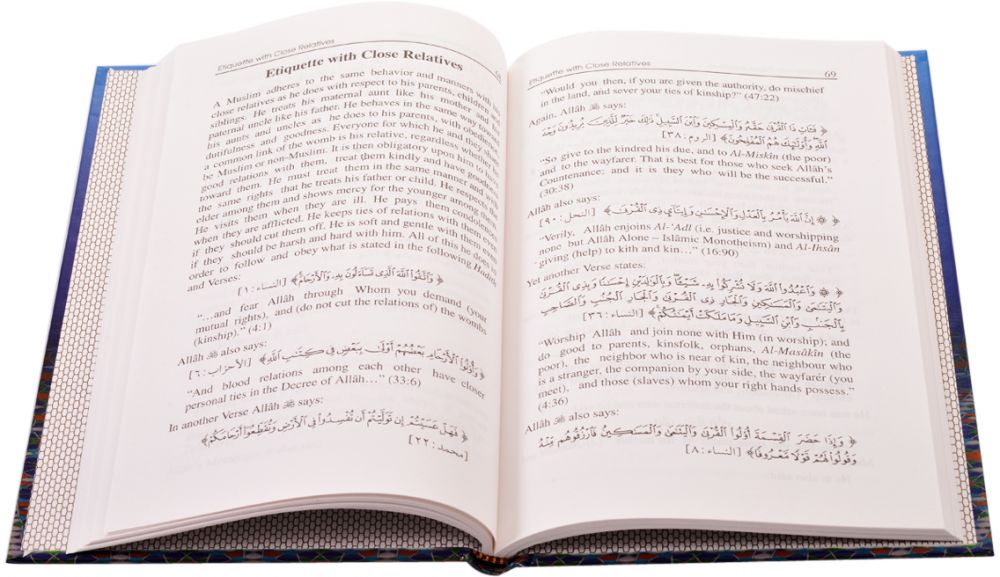 Etiquette with Close Relatives
Etiquette with Close Relatives
A Muslim adheres to the same behavior and manners with his
close relatives as he does with respect to his parents, children and
siblings. He treats his maternal aunt like his mother and his
paternal uncle like his father. He behaves in the same way towards
his aunts and uncles as he does to his parents, with obedience,
dutifulness and goodness. Everyone for which he and they share
a common link of the womb is his relative, regardless whether he
be Muslim or non-Muslim. It is then obligatory upon him to have
good relations with them, treat them kindly and have goodness
toward them. He must treat them in the same manner and with
the same rights that he treats his father or child. He respects the
elder among them and shows mercy for the younger among them.
He visits them when they are ill. He pays them condolences
when they are afflicted. He keeps ties of relations with them even
if they should cut them off. He is soft and gentle with them even
if they should be harsh and hard with him. All of this he does in
order to follow and obey what is stated in the following Hadith
and Verses:
﴿وَاتَّقُوا اللَّهَ الَّذِي تَسَاءَلُونَ بِهِ وَالْأَرْحَامَ﴾ [النساء: ١]
“…and fear Allâh through Whom you demand (your
mutual rights), and (do not cut the relations of) the wombs
(kinship).” (4:1)
Allâh ﷻ also says:
﴿وَأُولُوا الْأَرْحَامِ بَعْضُهُمْ أَوْلَىٰ بِبَعْضٍ فِي كِتَابِ اللَّهِ﴾ [الأحزاب: ٦]
“And blood relations among each other have closer
personal ties in the Decree of Allâh…” (33:6)
In another Verse Allâh ﷻ says:
﴿فَهَلْ عَسَيْتُمْ إِن تَوَلَّيْتُمْ أَن تُفْسِدُوا فِي الْأَرْضِ وَتُقَطِّعُوا أَرْحَامَكُمْ﴾
[محمد: ٢٢]
Etiquette with Close Relatives 69
“Would you then, if you are given the authority, do mischief
in the land, and sever your ties of kinship?” (47:22)
Again, Allâh ﷻ says:
﴿فَآتِ ذَا الْقُرْبَىٰ حَقَّهُ وَالْمِسْكِينَ وَابْنَ السَّبِيلِ ذَٰلِكَ خَيْرٌ لِّلَّذِينَ يُرِيدُونَ وَجْهَ
اللَّهِ وَأُولَٰئِكَ هُمُ الْمُفْلِحُونَ﴾ [الروم: ٣٨]
“So give to the kindred his due, and to Al-Miskîn (the poor)
and to the wayfarer. That is best for those who seek Allâh’s
Countenance; and it is they who will be the successful.”
(30:38)
Allâh also says:
﴿۞ إِنَّ اللَّهَ يَأْمُرُ بِالْعَدْلِ وَالْإِحْسَانِ وَإِيتَاءِ ذِي الْقُرْبَىٰ﴾ [النحل: ٩٠]
“Verily, Allâh enjoins Al-‘Adl (i.e. justice and worshipping
none but Allâh Alone – Islâmic Monotheism) and Al-Ihsân
giving (help) to kith and kin…” (16:90)
Yet another Verse states:
﴿۞ وَاعْبُدُوا اللَّهَ وَلَا تُشْرِكُوا بِهِ شَيْئًا وَبِالْوَالِدَيْنِ إِحْسَانًا وَبِذِي الْقُرْبَىٰ
وَالْيَتَامَىٰ وَالْمَسَاكِينِ وَالْجَارِ ذِي الْقُرْبَىٰ وَالْجَارِ الْجُنُبِ وَالصَّاحِبِ
بِالْجَنبِ وَابْنِ السَّبِيلِ وَمَا مَلَكَتْ أَيْمَانُكُمْ﴾ [النساء: ٣٦]
“Worship Allâh and join none with Him (in worship); and
do good to parents, kinsfolk, orphans, Al-Masâkîn (the
poor), the neighbor who is near of kin, the neighbour who
is a stranger, the companion by your side, the wayfarer (you
meet), and those (slaves) whom your right hands possess.”
(4:36)
Allâh ﷻ also says:
﴿وَإِذَا حَضَرَ الْقِسْمَةَ أُولُوا الْقُرْبَىٰ وَالْيَتَامَىٰ وَالْمَسَاكِينُ فَارْزُقُوهُم مِّنْهُ
وَقُولُوا لَهُمْ قَوْلًا مَّعْرُوفًا﴾ [النساء: ٨]